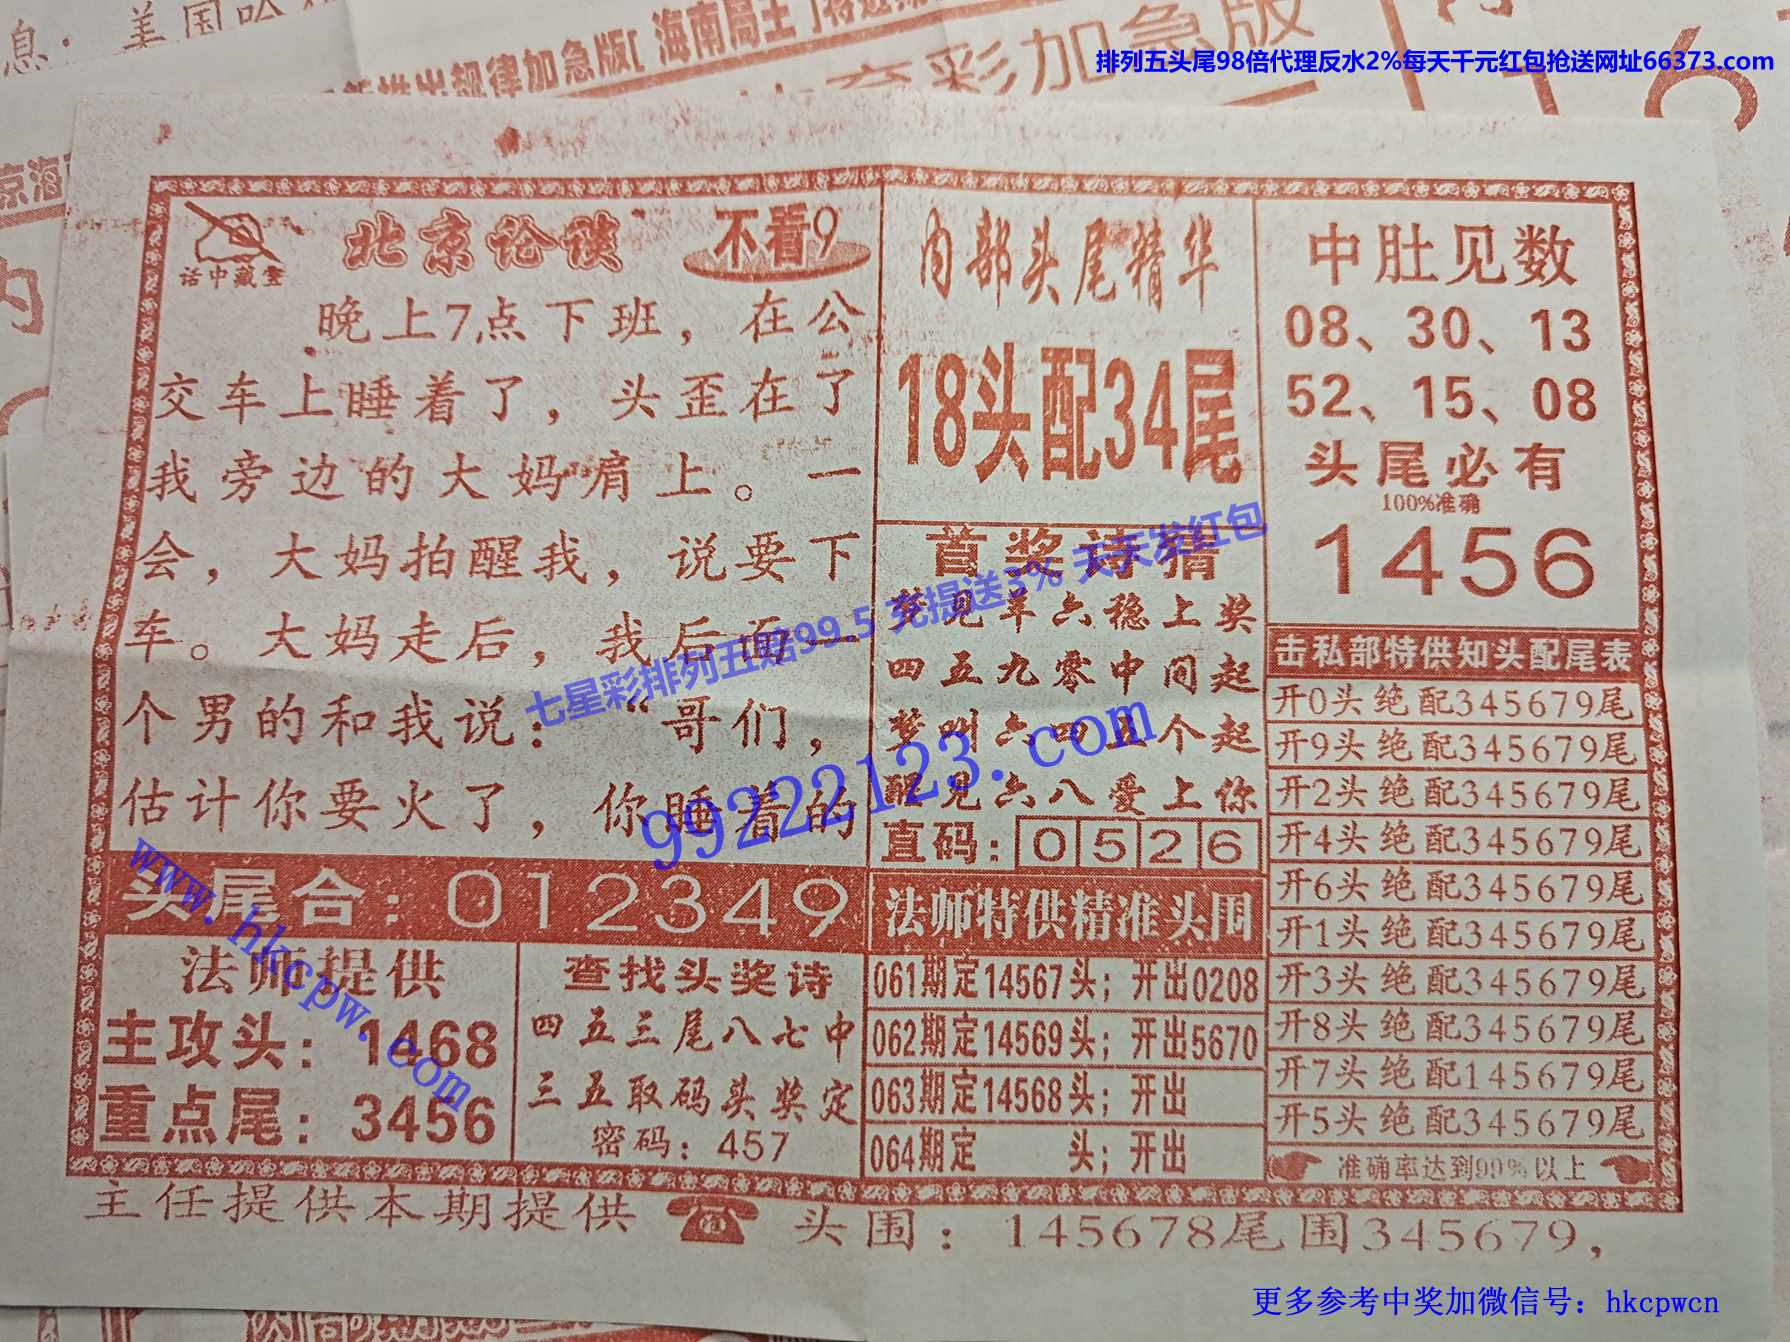 息：美国哈
新推出规律加急版[海南局王]
彩加急版
排列五头尾98倍代理反水2%每天千元红包抢送网址66373.com
京海
内
话中藏玄
北京论谈
不看9
晚上7点下班，在公
交车上睡着了，头歪在了
我旁边的大妈肩上。一
会，大妈拍醒我，说要下
车。大妈走后，我后面一
个男的和我说：“哥们，
估计你要火了，你睡着的
头尾合：012349
法师提供
主攻头：1468
重点尾：3456
查找头奖诗
四五三尾八七中
三五取码头奖定
密码：457
内部头尾精华
18头配34尾
首奖诗猜
梦见羊六稳上奖
四五九零中间起
梦州六四五个起
醒见六八爱上你
直码：0526
法师特供精准头围
061期定14567头；开出0208
062期定14569头；开出5670
063期定14568头；开出
064期定 头；开出
中肚见数
08、30、13
52、15、08
头尾必有
100%准确
1456
击私部特供知头配尾表
开0头绝配345679尾
开9头绝配345679尾
开2头绝配345679尾
开4头绝配345679尾
开6头绝配345679尾
开1头绝配345679尾
开3头绝配345679尾
开8头绝配345679尾
开7头绝配145679尾
开5头绝配345679尾
准确率达到99%以上
主任提供本期提供 头围：145678尾围345679，
七星彩排列五赔99.5 充提送3% 天天发红包
99222123.com
www.hkcpw.com
更多参考中奖加微信号：hkcpwcn